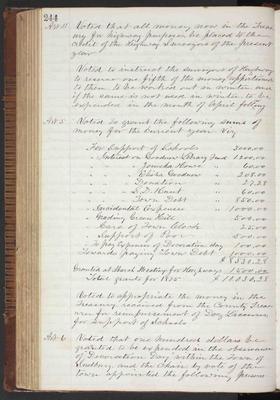 244
Art 11. Voted that all money now in the Treas
ury for highway purposes be placed to the
credit of the Highway Surveyors of the present
year
Voted to instruct the surveyors of Highway
to reserve one fifth of the money apportioned
to them to be worked out in winter and
if the same is not used in winter to be
expended in the month of April following
Art 5. Voted to grant the following sums of
money for the current year Viz
For Support of Schools 3000.00
" Interest on Goodnow Library Fund 1200.00
" " " Howe 60.00
" " " Goodnow " 208.00
" " " Donation " 27.28
" " " S. D. Hunt 60.00
" " " Town Debt 850.00
" Incidental Expenses 1000.00
" Grading Green Hill 500.00
" Care of Town Clock 25.00
" Support of Poor 500.00
" To pay Expenses of Decoration day 100.00
Towards paying Town Debt 1000.00
Granted at March Meeting for Highways 1500.00
Total grants for 1885
Voted to appropriate the money in the
Treasury received from the County Treas
urer for reimbursement of Dog Licenses
for Support of Schools
Art 6. Voted that one hundred dollars be
granted to be expended in the observance
of Decoration Day within the Town of
Sudbury and the Chair by vote of the
town appointed the following persons